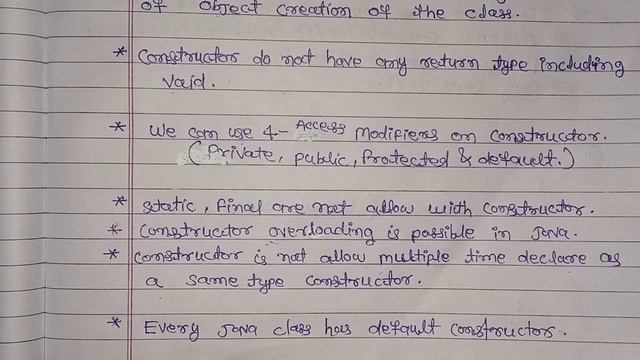 of object creation of the class.
* Constructor do not have any return type including
Void.
* We can use 4- Access Modifiers on constructor.
(Private, public, Protected & default.)
* static, final are not allow with constructor.
* Constructor overloading is possible in Java.
* Constructor is not allow multiple time declare as
a same type constructor.
* Every Java class has default constructor.